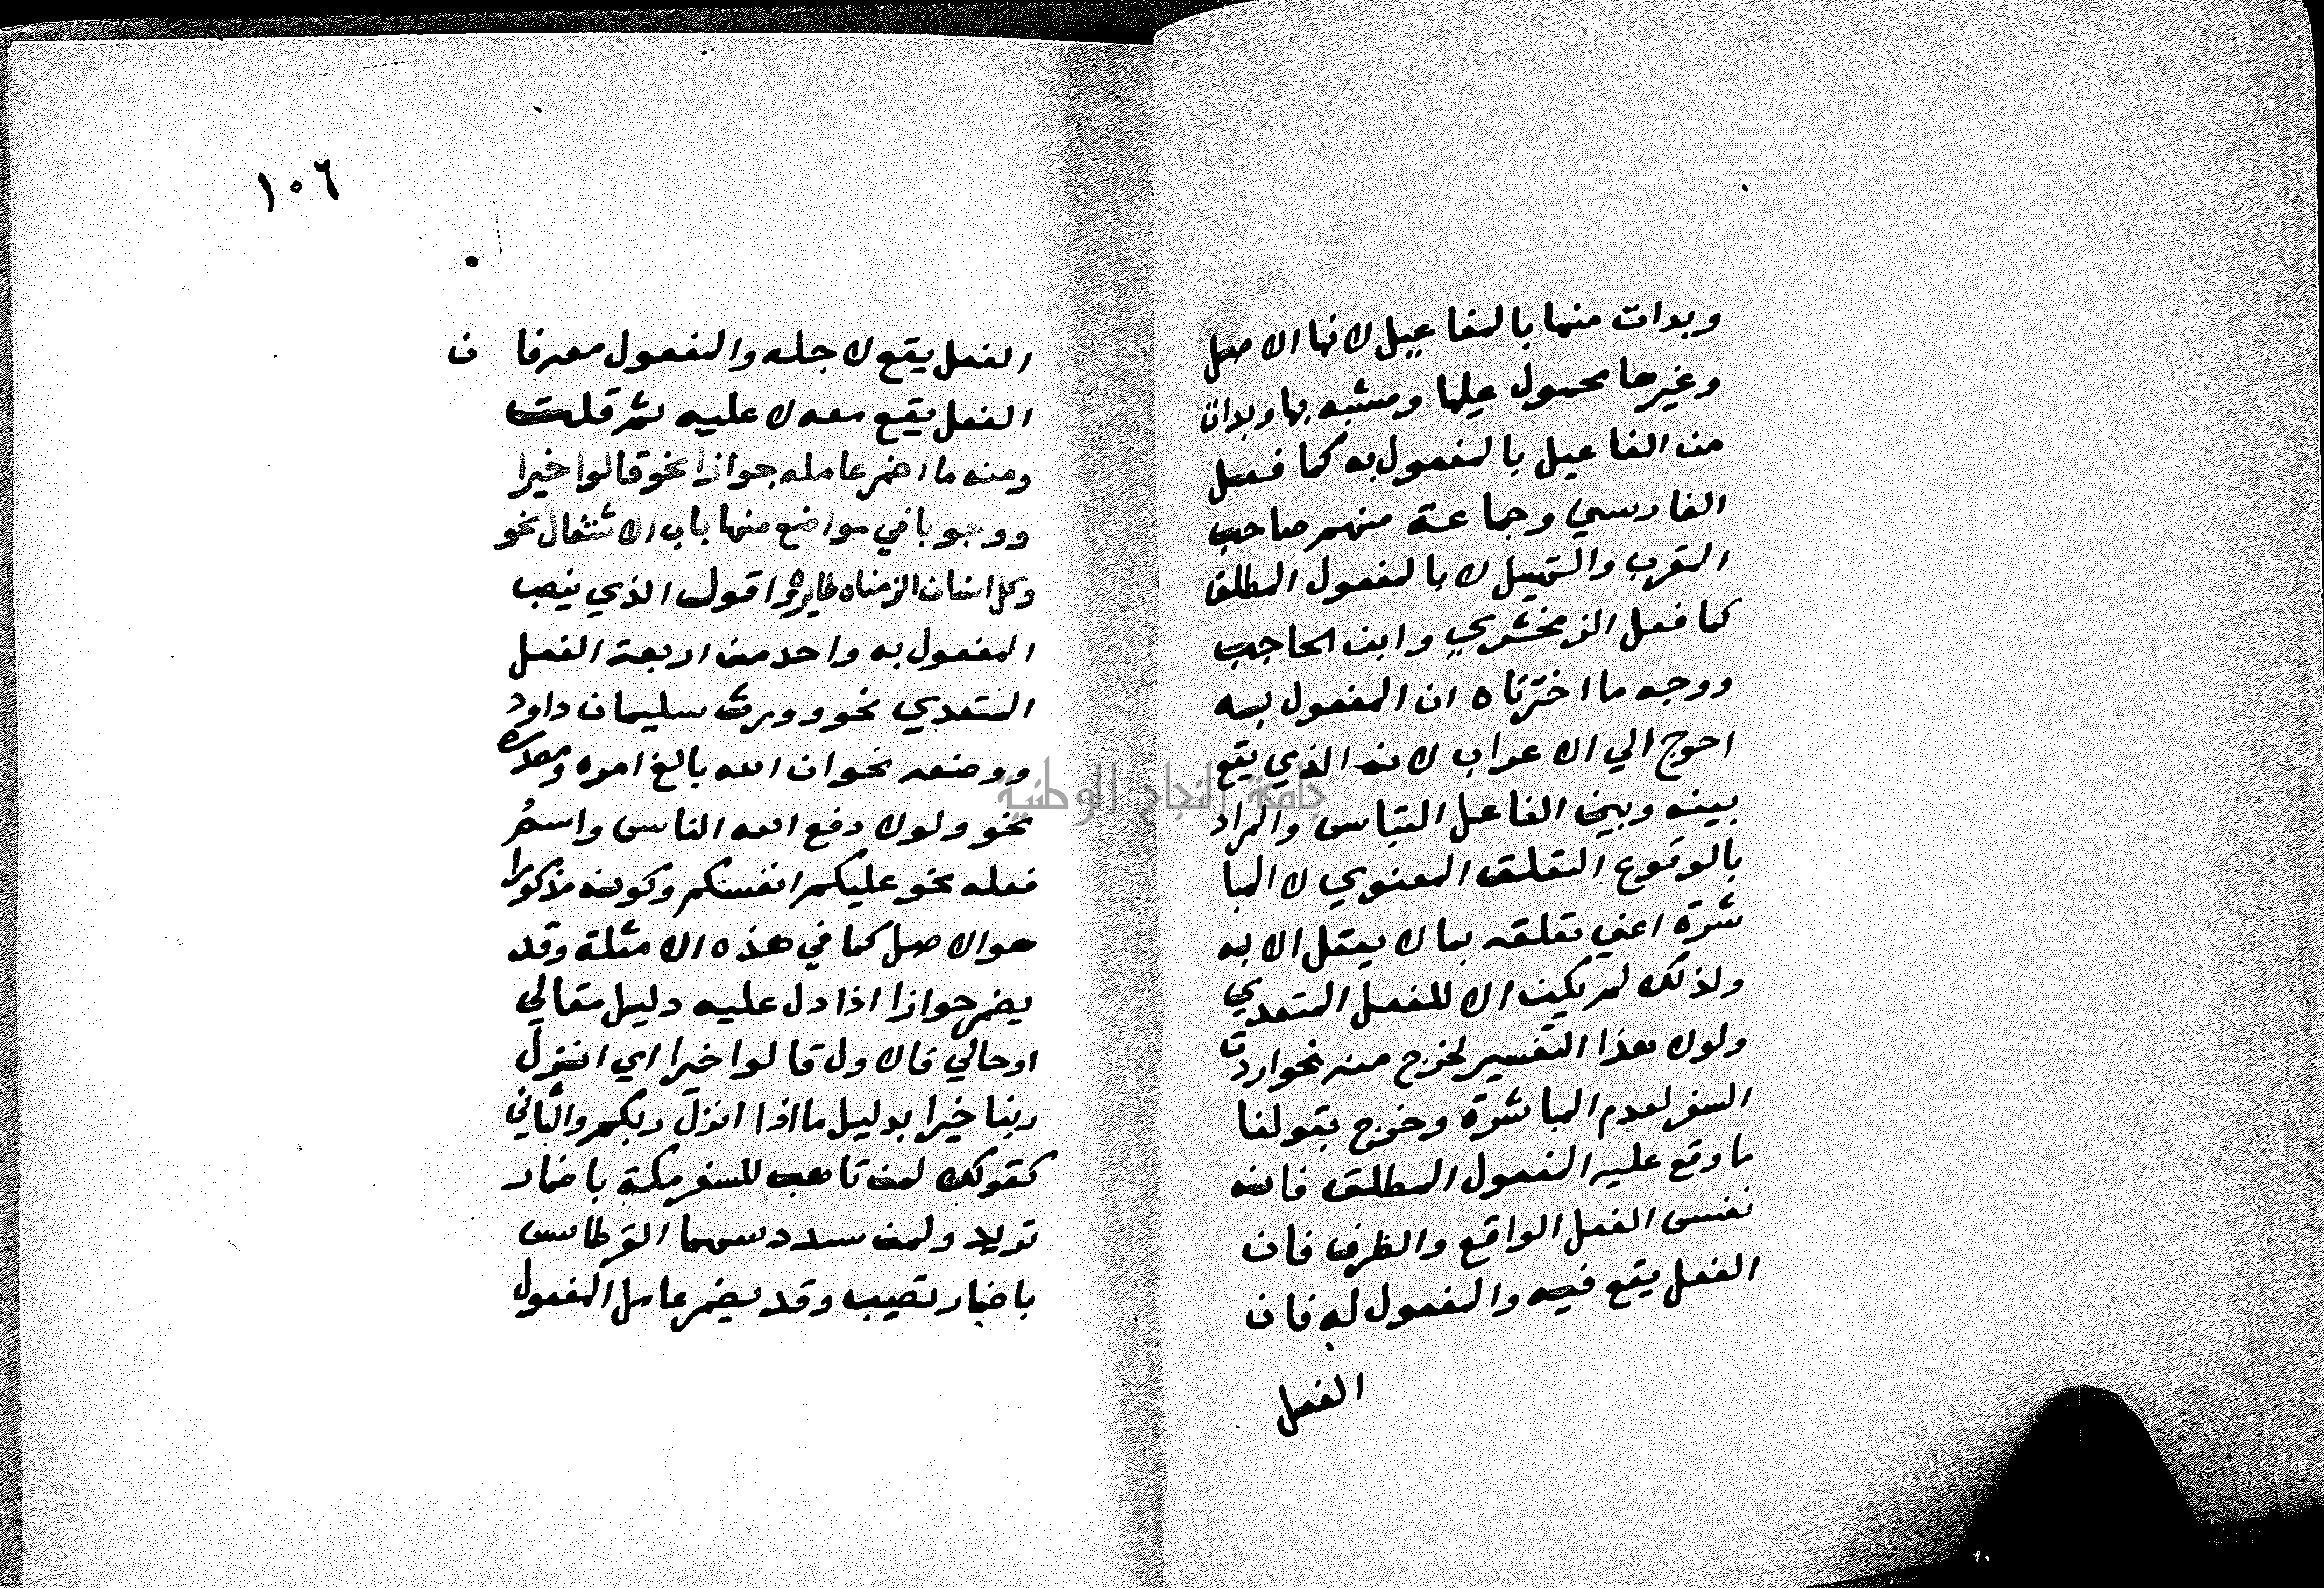 وبدات منها بالمفاعيل لانها الاصل
وغيرها محمول عليها ومشبه بها وبدات
من المفاعيل بالمفعول به كما فعل
الفارسي وجماعة منهم صاحب
المقرب والتسهيل لا بالمفعول المطلق
كما فعل الزمخشري وابن الحاجب
ووجه ما اخترناه ان المفعول به
احوج الي الاعراب لانه الذي يقع
بينه وبين الفاعل التباس والمراد
بالوقوع التعلق المعنوي لا المبا
شرة اعني تعلقه بما لا يعقل الا به
ولذلك لم يكن الا للفعل المتعدي
ولولا هذا التفسير لخرج منه نحو اردت
السفر لعدم المباشرة وخرج بقولنا
ما وقع عليه المفعول المطلق فانه
نفس الفعل الواقع والظرف فان
الفعل يقع فيه والمفعول له فان
الفعل
١٠٦
الفعل يقع لاجله والمفعول معه فان
الفعل يقع معه لا عليه ثم قلت
ومنه ما اضمر عامله جوازا نحو قالوا خيرا
ووجوبا في مواضع منها باب الاشتغال نحو
وكل انسان الزمناه طايره واقول الذي ينصب
المفعول به واحد من اربعة الفعل
المتعدي نحو وورث سليمان داود
ووصفه نحو ان الله بالغ امره ومصدره
نحو ولولا دفع الله الناس واسم
فعله نحو عليكم انفسكم وكونه مذكورا
هو الاصل كما في هذه الامثلة وقد
يضمر جوازا اذا دل عليه دليل مقالي
او حالي فالاول قالوا خيرا اي انزل
ربنا خيرا بدليل ماذا انزل ربكم والثاني
كقولك لمن تاهب للسفر مكة باضمار
تريد ولمن سدد سهما القرطاس
باضمار تصيب وقد يضمر عامل المفعول
جامعة النجاح الوطنية